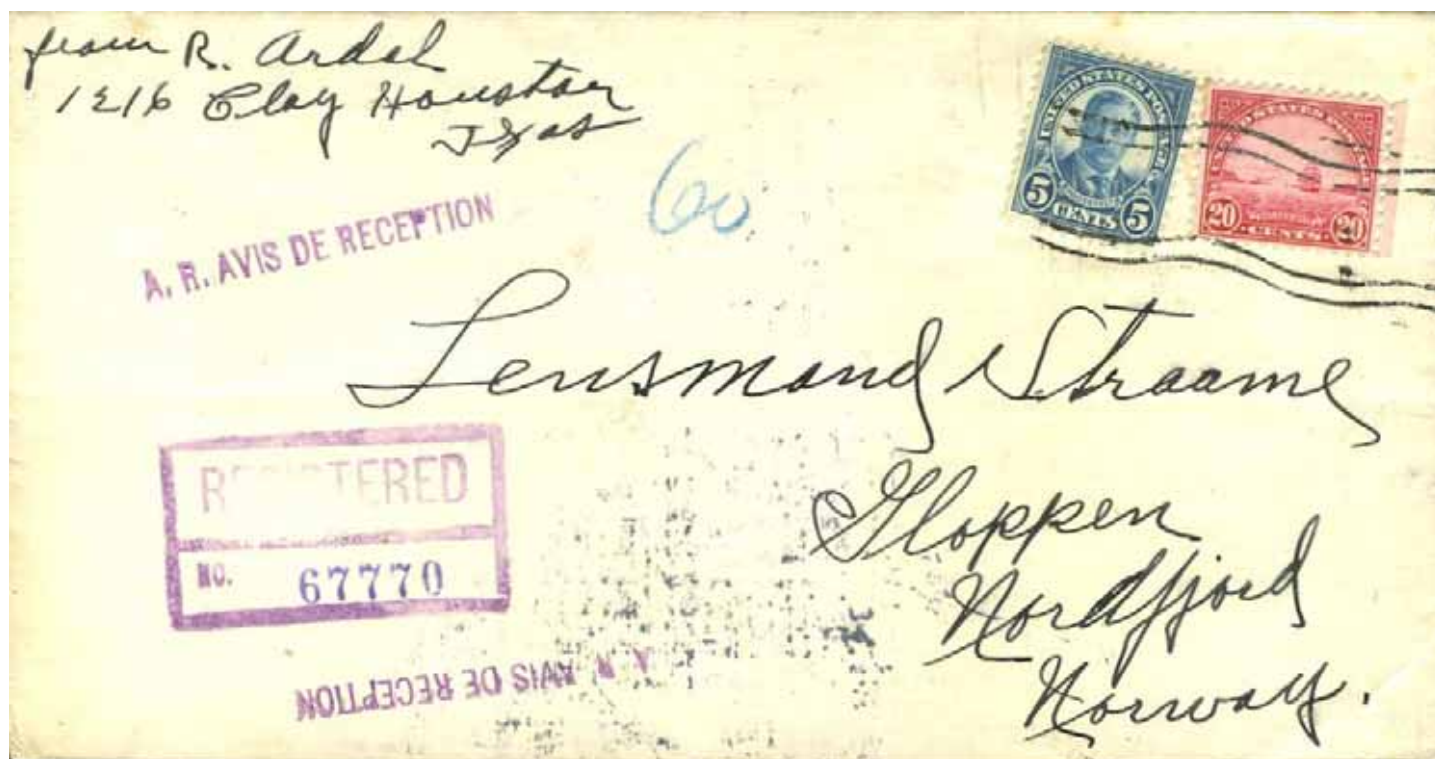 from R. Ardal
1216 Clay Houston
Texas
60
A. R. AVIS DE RECEPTION
UNITED STATES POSTAGE
5 CENTS 5
20 CENTS 20
Lensmand Straame
Gloppen
Nordfjord
Norway.
REGISTERED
NO. 67770
A. R. AVIS DE RECEPTION